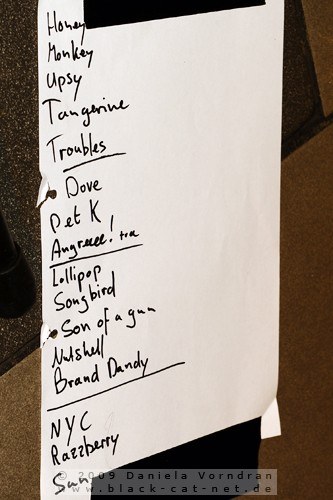 Honey
Monkey
Upsy
Tangerine
Troubles
Dove
Pet K
Lollipop
Songbird
Son of a gun
Nutshell
Brand Dandy
NYC
Razzberry
© 2009 Daniela Vorndran
www.black-cat-net.de